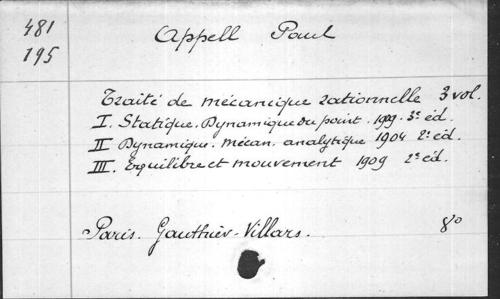 481
195
Appell Paul
Traité de mécanique rationnelle 3 vol.
I. Statique. Dynamique du point. 1909. 3e éd.
II Dynamique. Mécan. analytique 1904 2e éd.
III. Equilibre et mouvement 1909 2e éd.
Paris. Gauthier-Villars. 8o